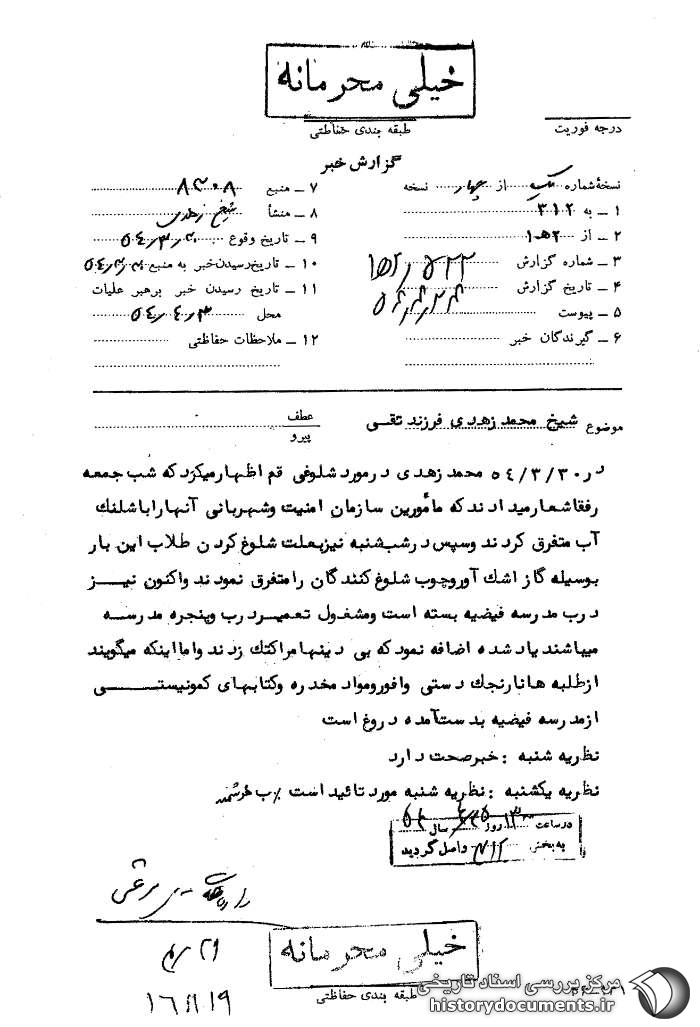 خیلی محرمانه
طبقه بندی حفاظتی
درجه فوریت
گزارش خبر
نسخهٔ شماره یک از چهار نسخه
۱ ــ به ۳۱۲
۲ ــ از ۱ه۲
۳ ــ شماره گزارش
۴ ــ تاریخ گزارش
۵ ــ پیوست
۶ ــ گیرندگان خبر
۷ ــ منبع ۸۳۰۸
۸ ــ منشأ شیخ زهدی
۹ ــ تاریخ وقوع ۵۴٫۳٫۳۰
۱۰ ــ تاریخ رسیدن خبر به منبع
۱۱ ــ تاریخ رسیدن خبر برهبر عملیات
محل ۵۴٫۴٫۳
۱۲ ــ ملاحظات حفاظتی
موضوع شیخ محمد زهدی فرزند تقی
عطف
پیرو
در ۵۴/۳/۳۰ محمد زهدی در مورد شلوغی قم اظهار میکرد که شب جمعه
رفقا شعار میدادند که مأمورین سازمان امنیت وشهربانی آنهارا باشلنگ
آب متفرق کردند وسپس در شب شنبه نیز بعلت شلوغ کردن طلاب این بار
بوسیله گاز اشک آور وچوب شلوغ کنندگان را متفرق نمودند واکنون نیز
درب مدرسه فیضیه بسته است ومشغول تعمیر درب وپنجره مدرسه
میباشند یاد شده اضافه نمود که بی دینها مرا کتک زدند واما اینکه میگویند
از طلبه ها نارنجک دستی وافور ومواد مخدره وکتابهای کمونیستی
از مدرسه فیضیه بدست آمده دروغ است
نظریه شنبه : خبر صحت دارد
نظریه یکشنبه : نظریه شنبه مورد تائید است
در ساعت ۱۳ روز سال ۵۴
به بخش ۳۱۲ واصل گردید
خیلی محرمانه
طبقه بندی حفاظتی
۱۶٫۱۱٫۱۹
مرکز بررسی اسناد تاریخی
historydocuments.ir